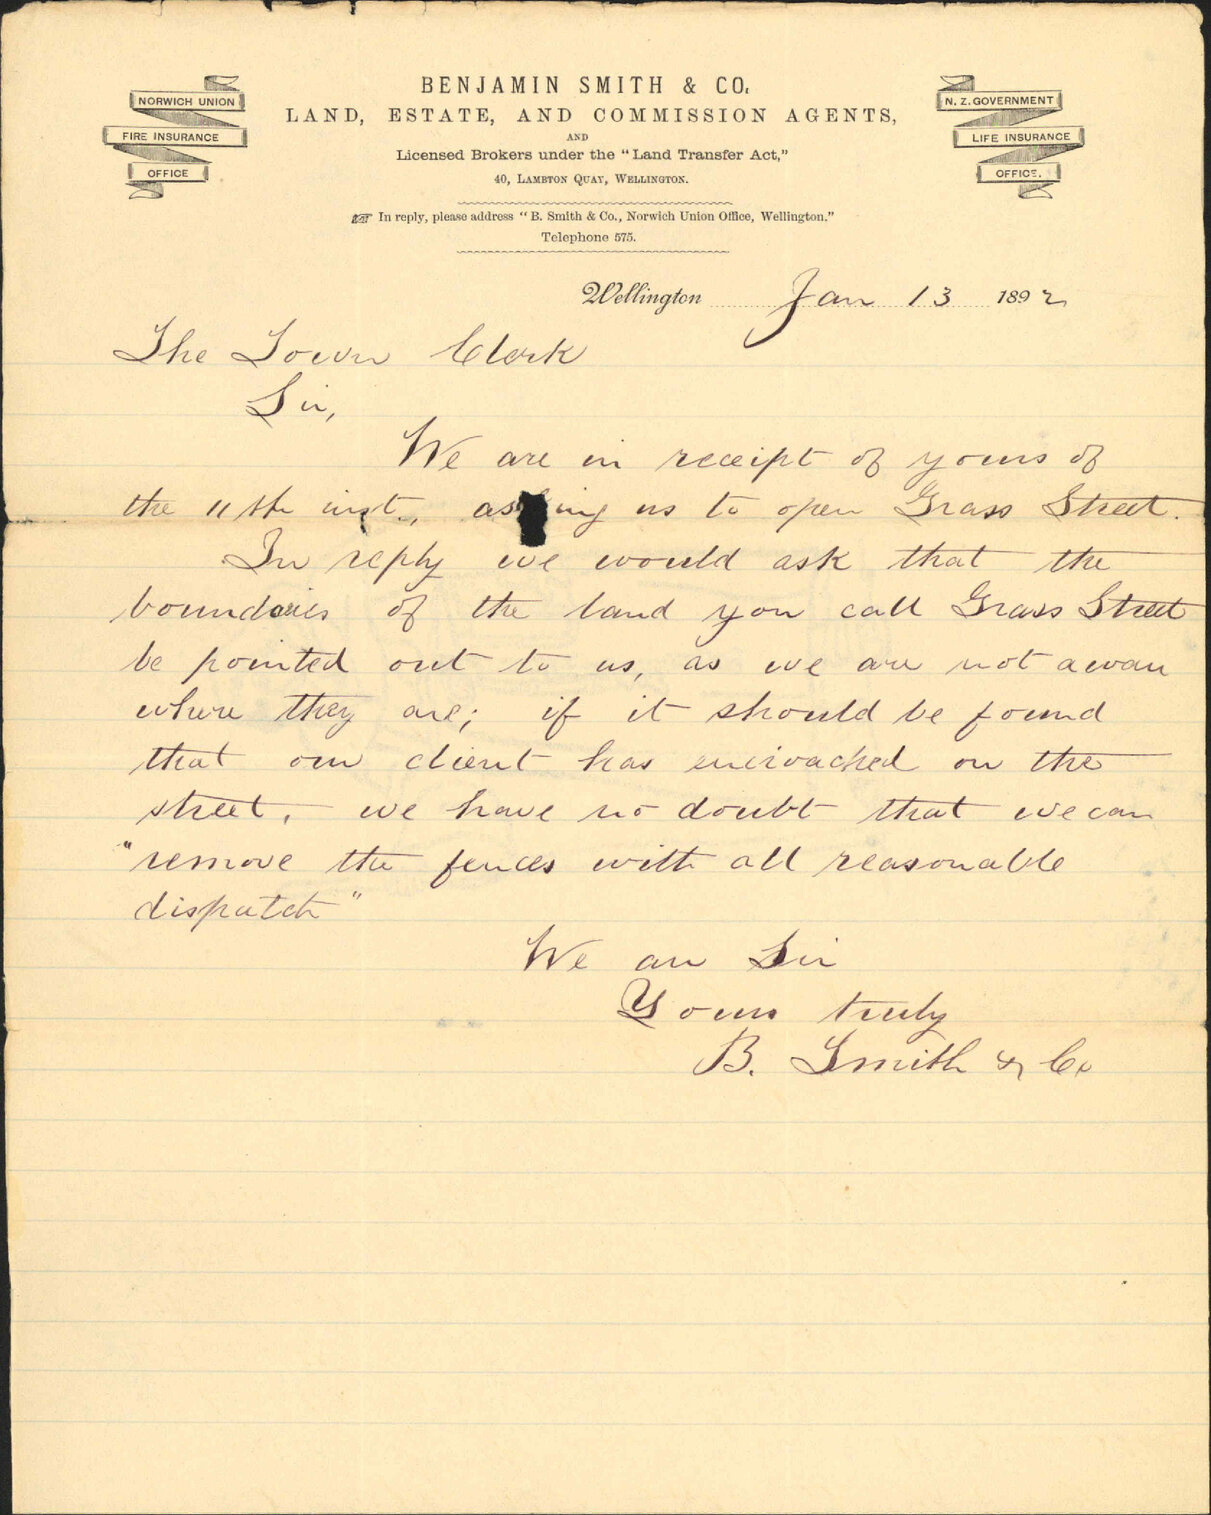 NORWICH UNION
FIRE INSURANCE
OFFICE
BENJAMIN SMITH & CO.
LAND, ESTATE, AND COMMISSION AGENTS,
AND
Licensed Brokers under the "Land Transfer Act,"
40, LAMBTON QUAY, WELLINGTON.
N. Z. GOVERNMENT
LIFE INSURANCE
OFFICE.
☞ In reply, please address "B. Smith & Co., Norwich Union Office, Wellington."
Telephone 575.
Wellington Jan 13 1892
The Town Clerk
Sir,
We are in receipt of yours of
the 11th inst., asking us to open Grass Street.
In reply we would ask that the
boundaries of the land you call Grass Street
be pointed out to us, as we are not aware
where they are; if it should be found
that our client has encroached on the
street, we have no doubt that we can
"remove the fences with all reasonable
dispatch"
We are Sir
Yours truly
B. Smith & Co